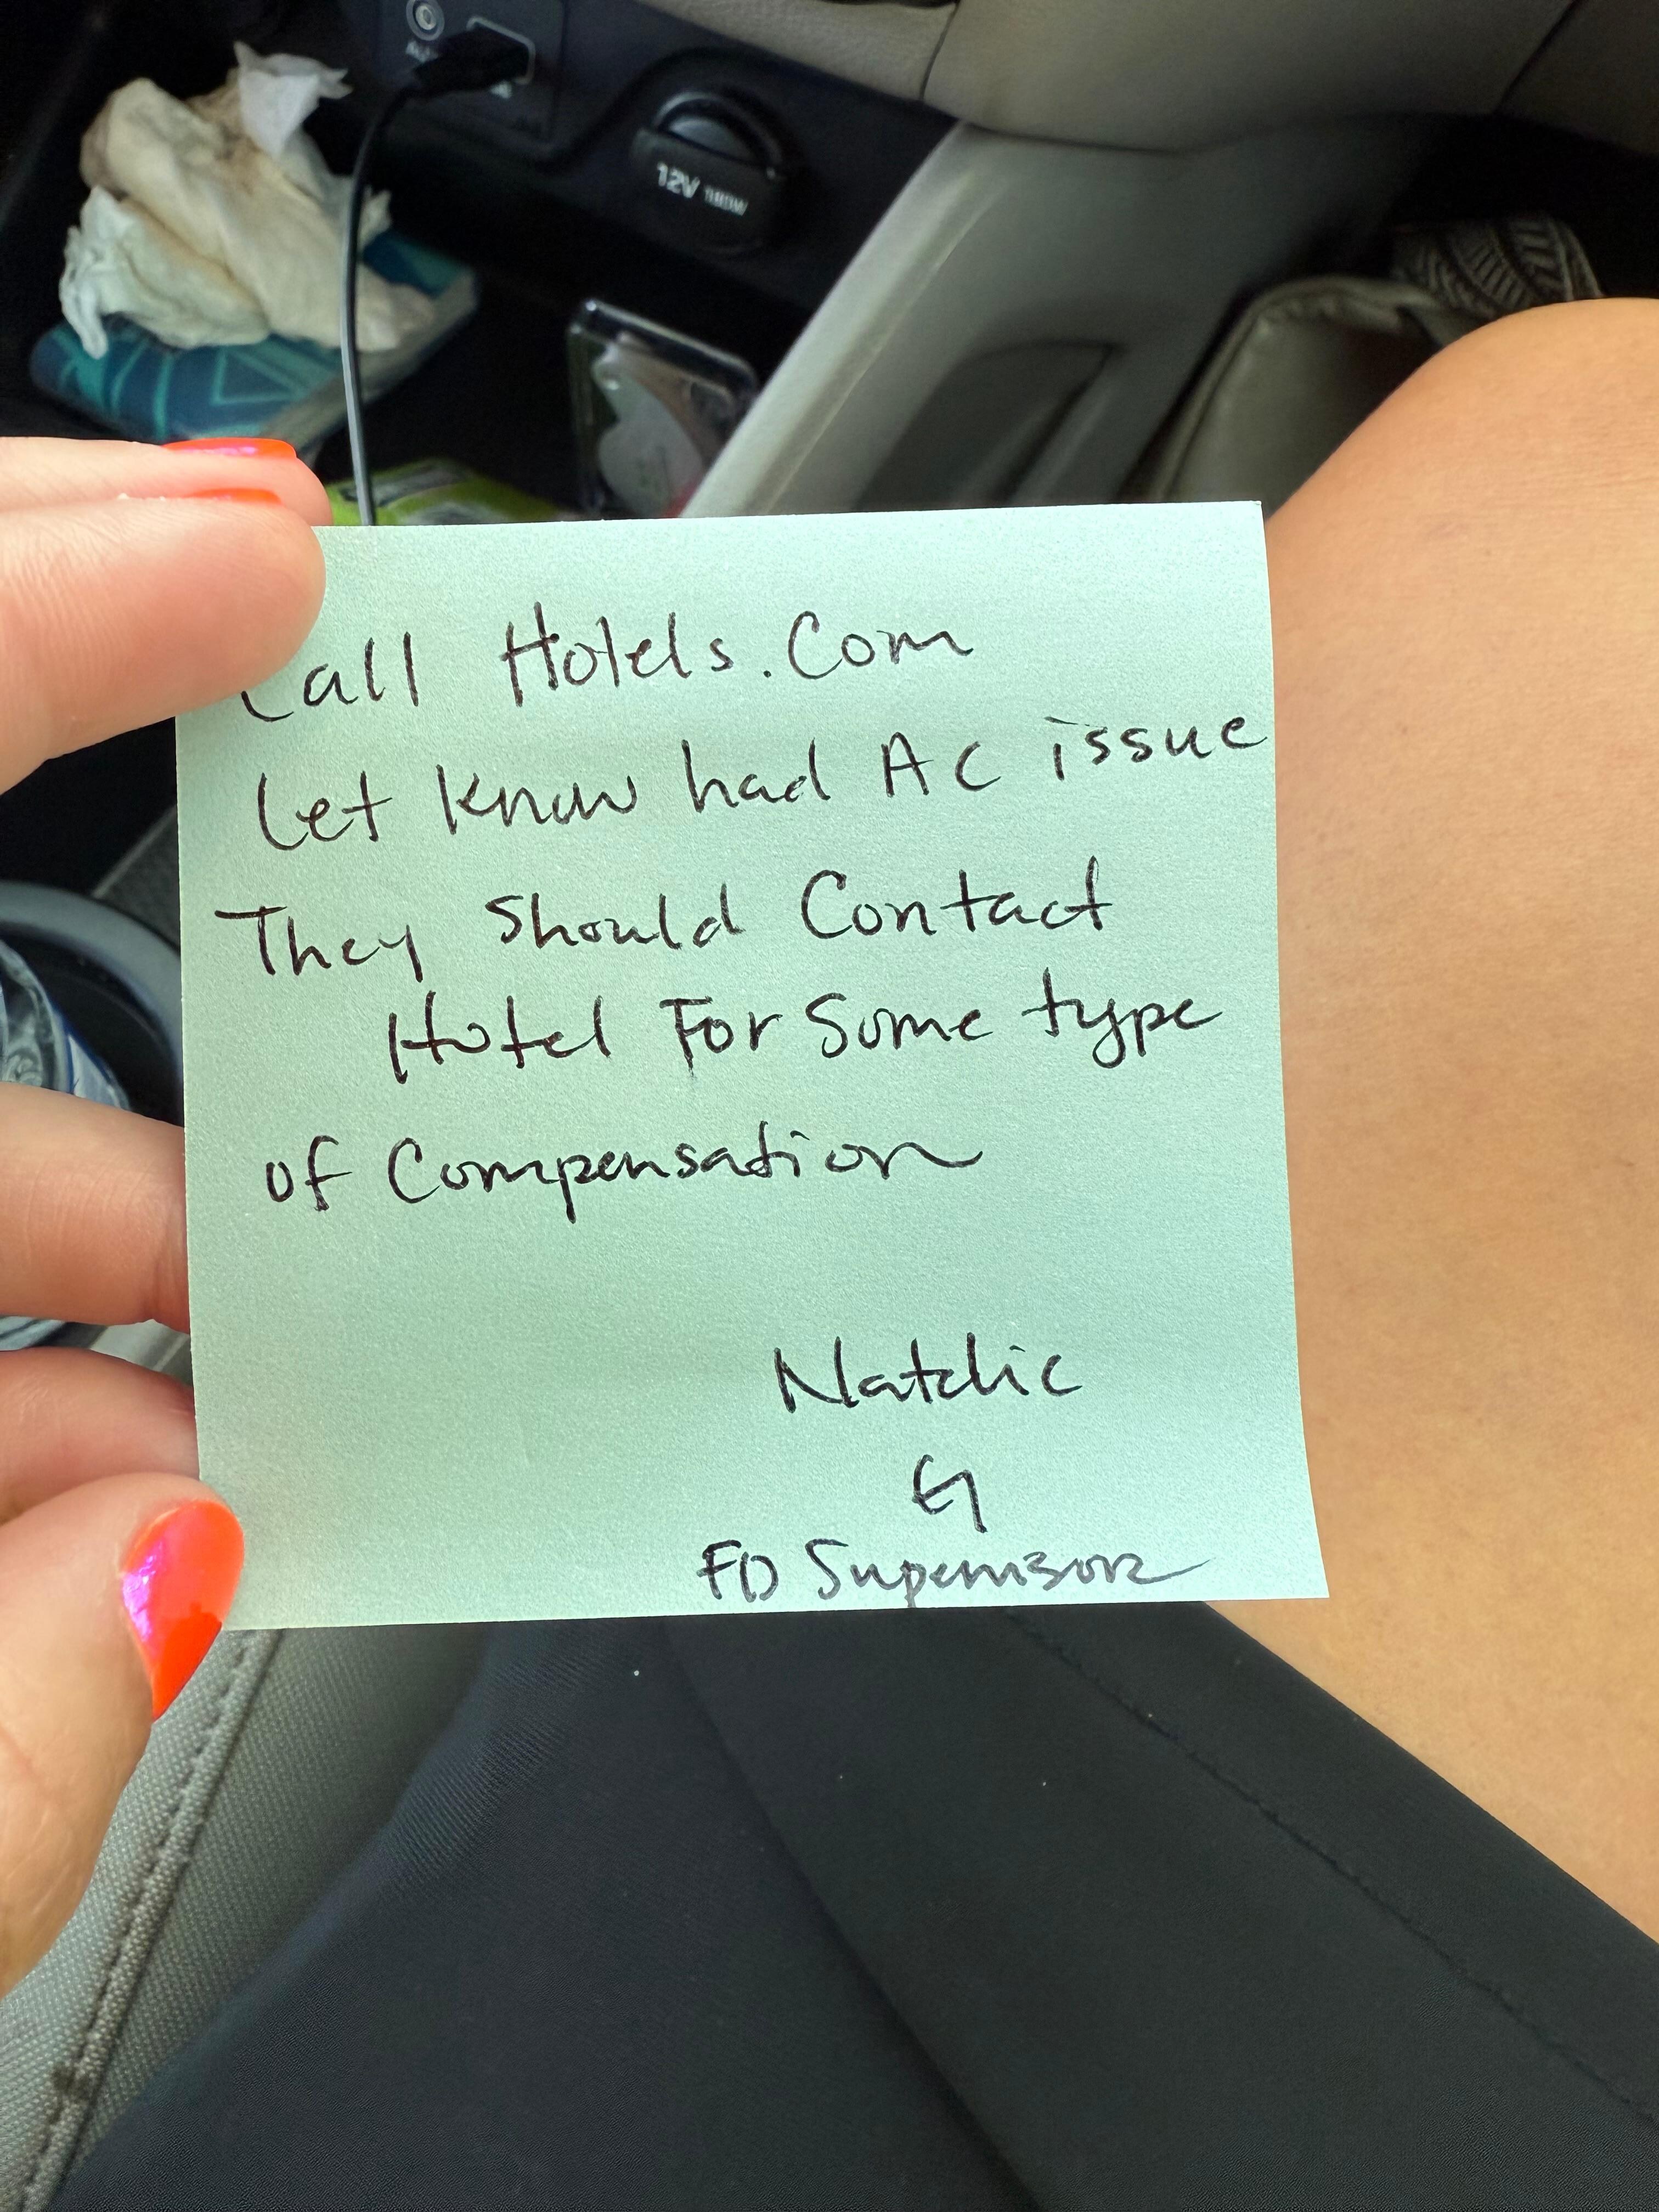 12V 180W
Call Hotels.Com
Let Know had AC issue
They Should Contact
Hotel For Some type
of Compensation
Natalie
FD Supervisor